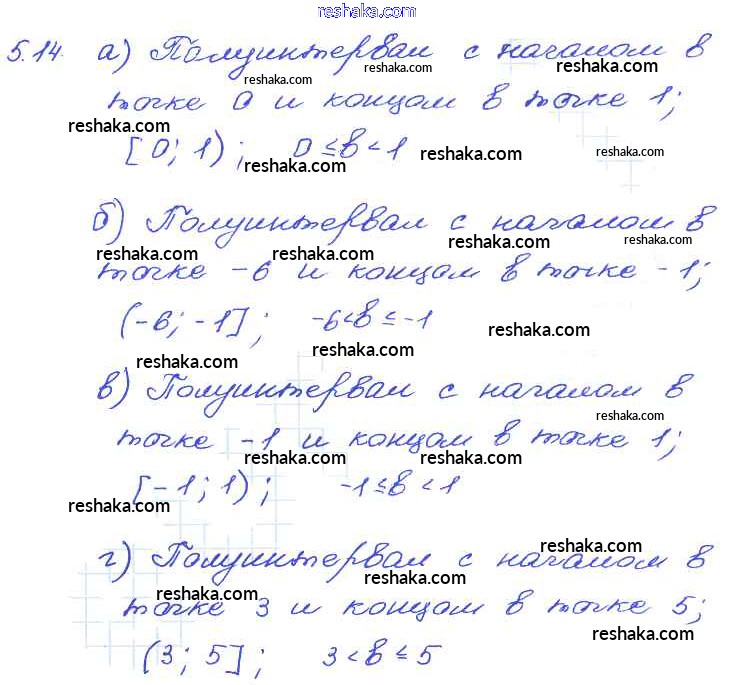 reshaka.com
5.14. а) Полуинтервал с началом в
reshaka.com reshaka.com reshaka.com
точке 0 и концом в точке 1;
reshaka.com
[0; 1); 0 ≤ в < 1
reshaka.com reshaka.com reshaka.com
б) Полуинтервал с началом в
reshaka.com reshaka.com reshaka.com reshaka.com
точке -6 и концом в точке -1;
(-6; -1]; -6 < в ≤ -1
reshaka.com
reshaka.com reshaka.com
в) Полуинтервал с началом в
reshaka.com
точке -1 и концом в точке 1;
reshaka.com reshaka.com
[-1; 1); -1 ≤ в < 1
reshaka.com
reshaka.com
г) Полуинтервал с началом в
reshaka.com reshaka.com
точке 3 и концом в точке 5;
reshaka.com
(3; 5]; 3 < в ≤ 5